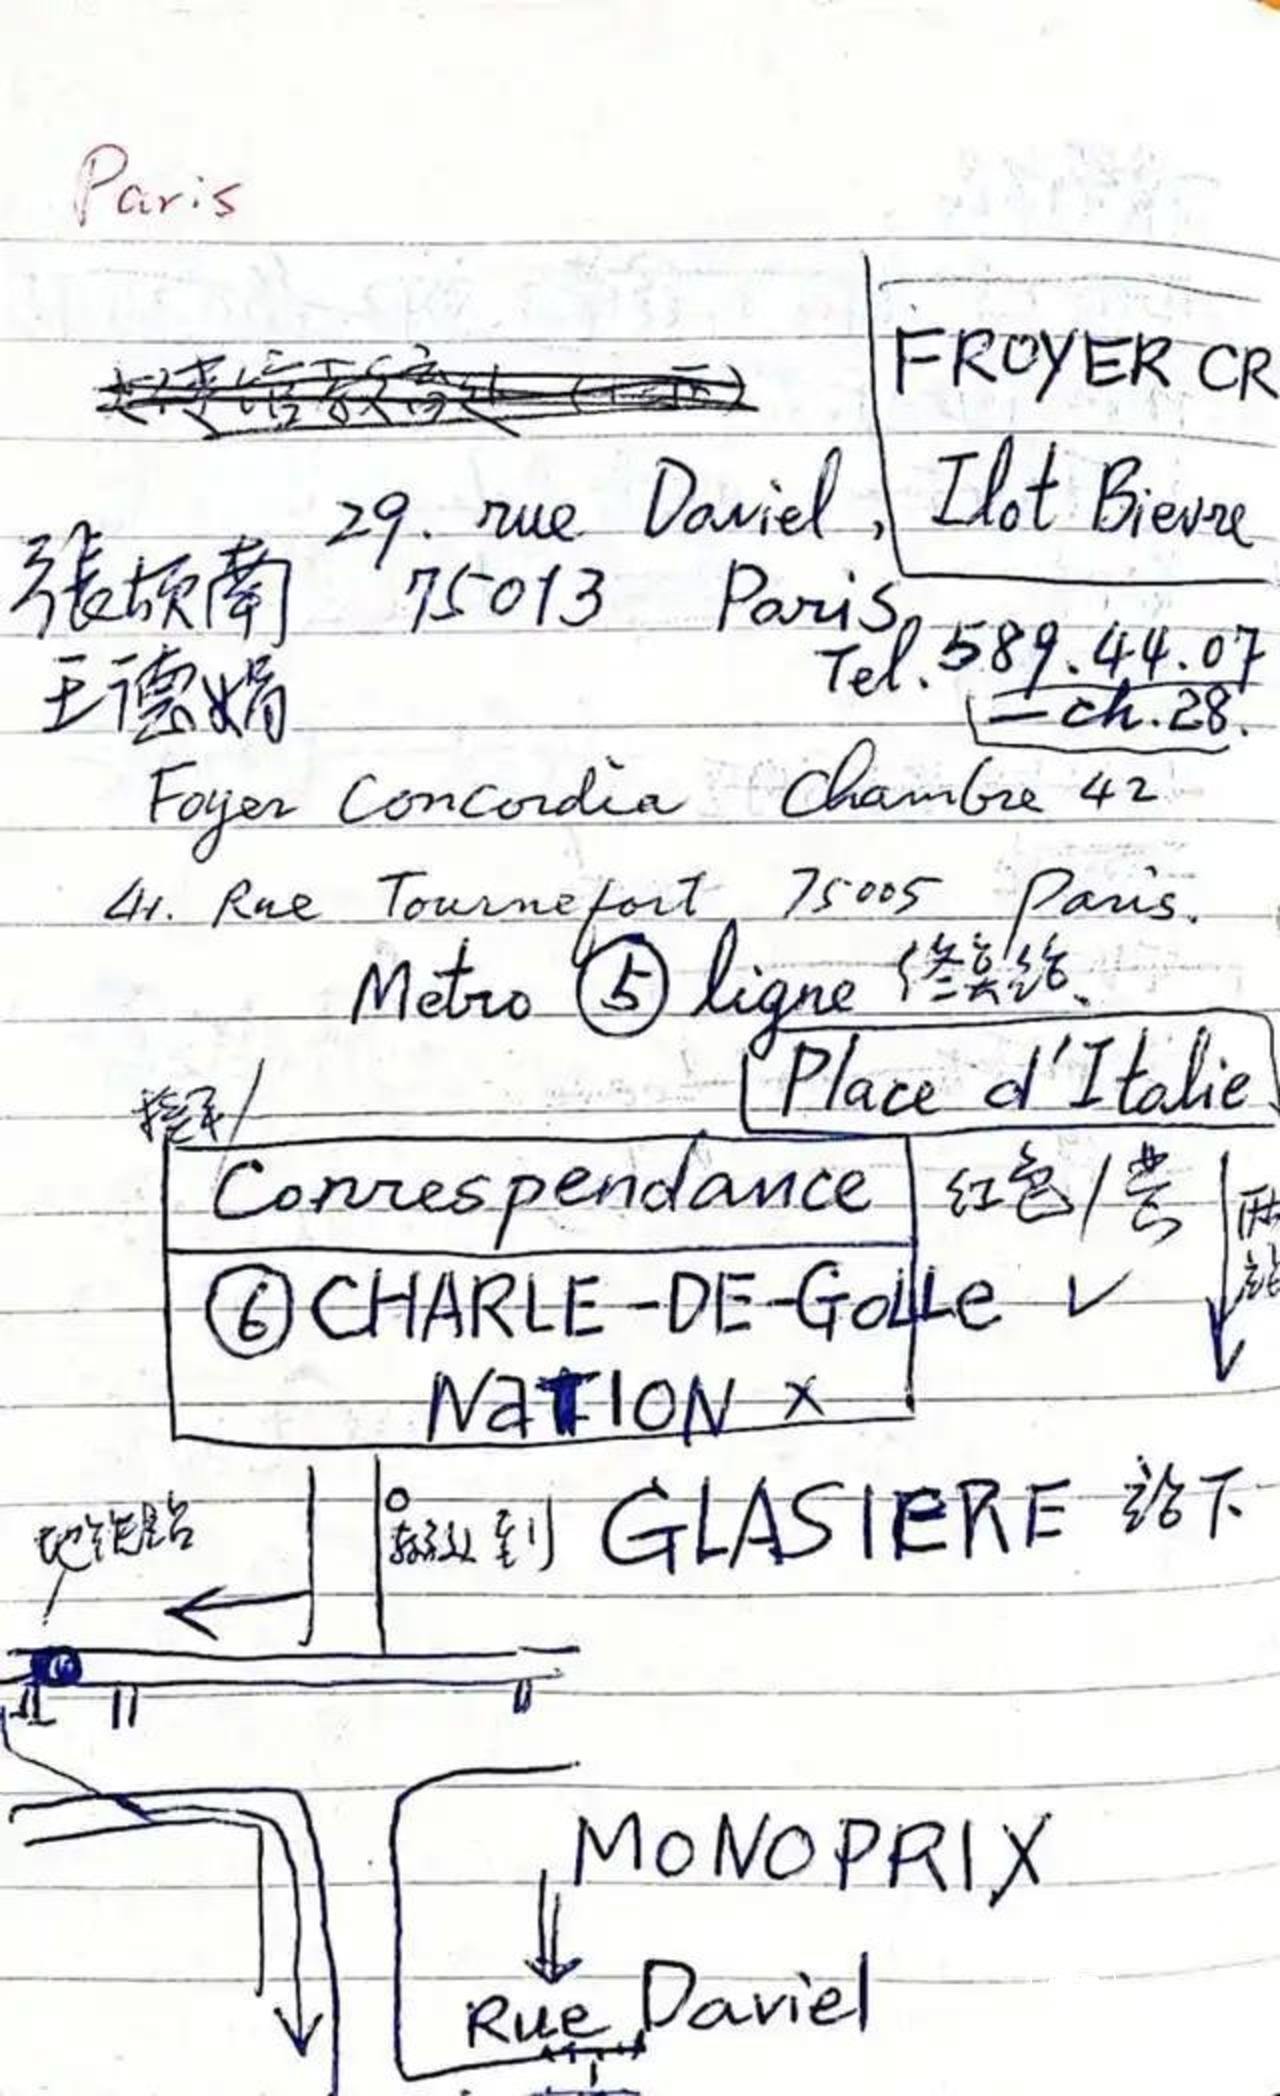 Paris
FROYER CR
29. rue Daviel,
Ilot Bievre
張頎南
75013 Paris
Tel. 589.44.07
王德娟
—ch.28.
Foyer Concordia Chambre 42
41. Rue Tournefort 75005 Paris.
Metro ⑤ ligne
Place d'Italie
Correspendance
红色/
⑥ CHARLE-DE-GOLLe ✓
NaTION ×
地铁站
到 GLASIERE 站下
MONOPRIX
Rue Daviel